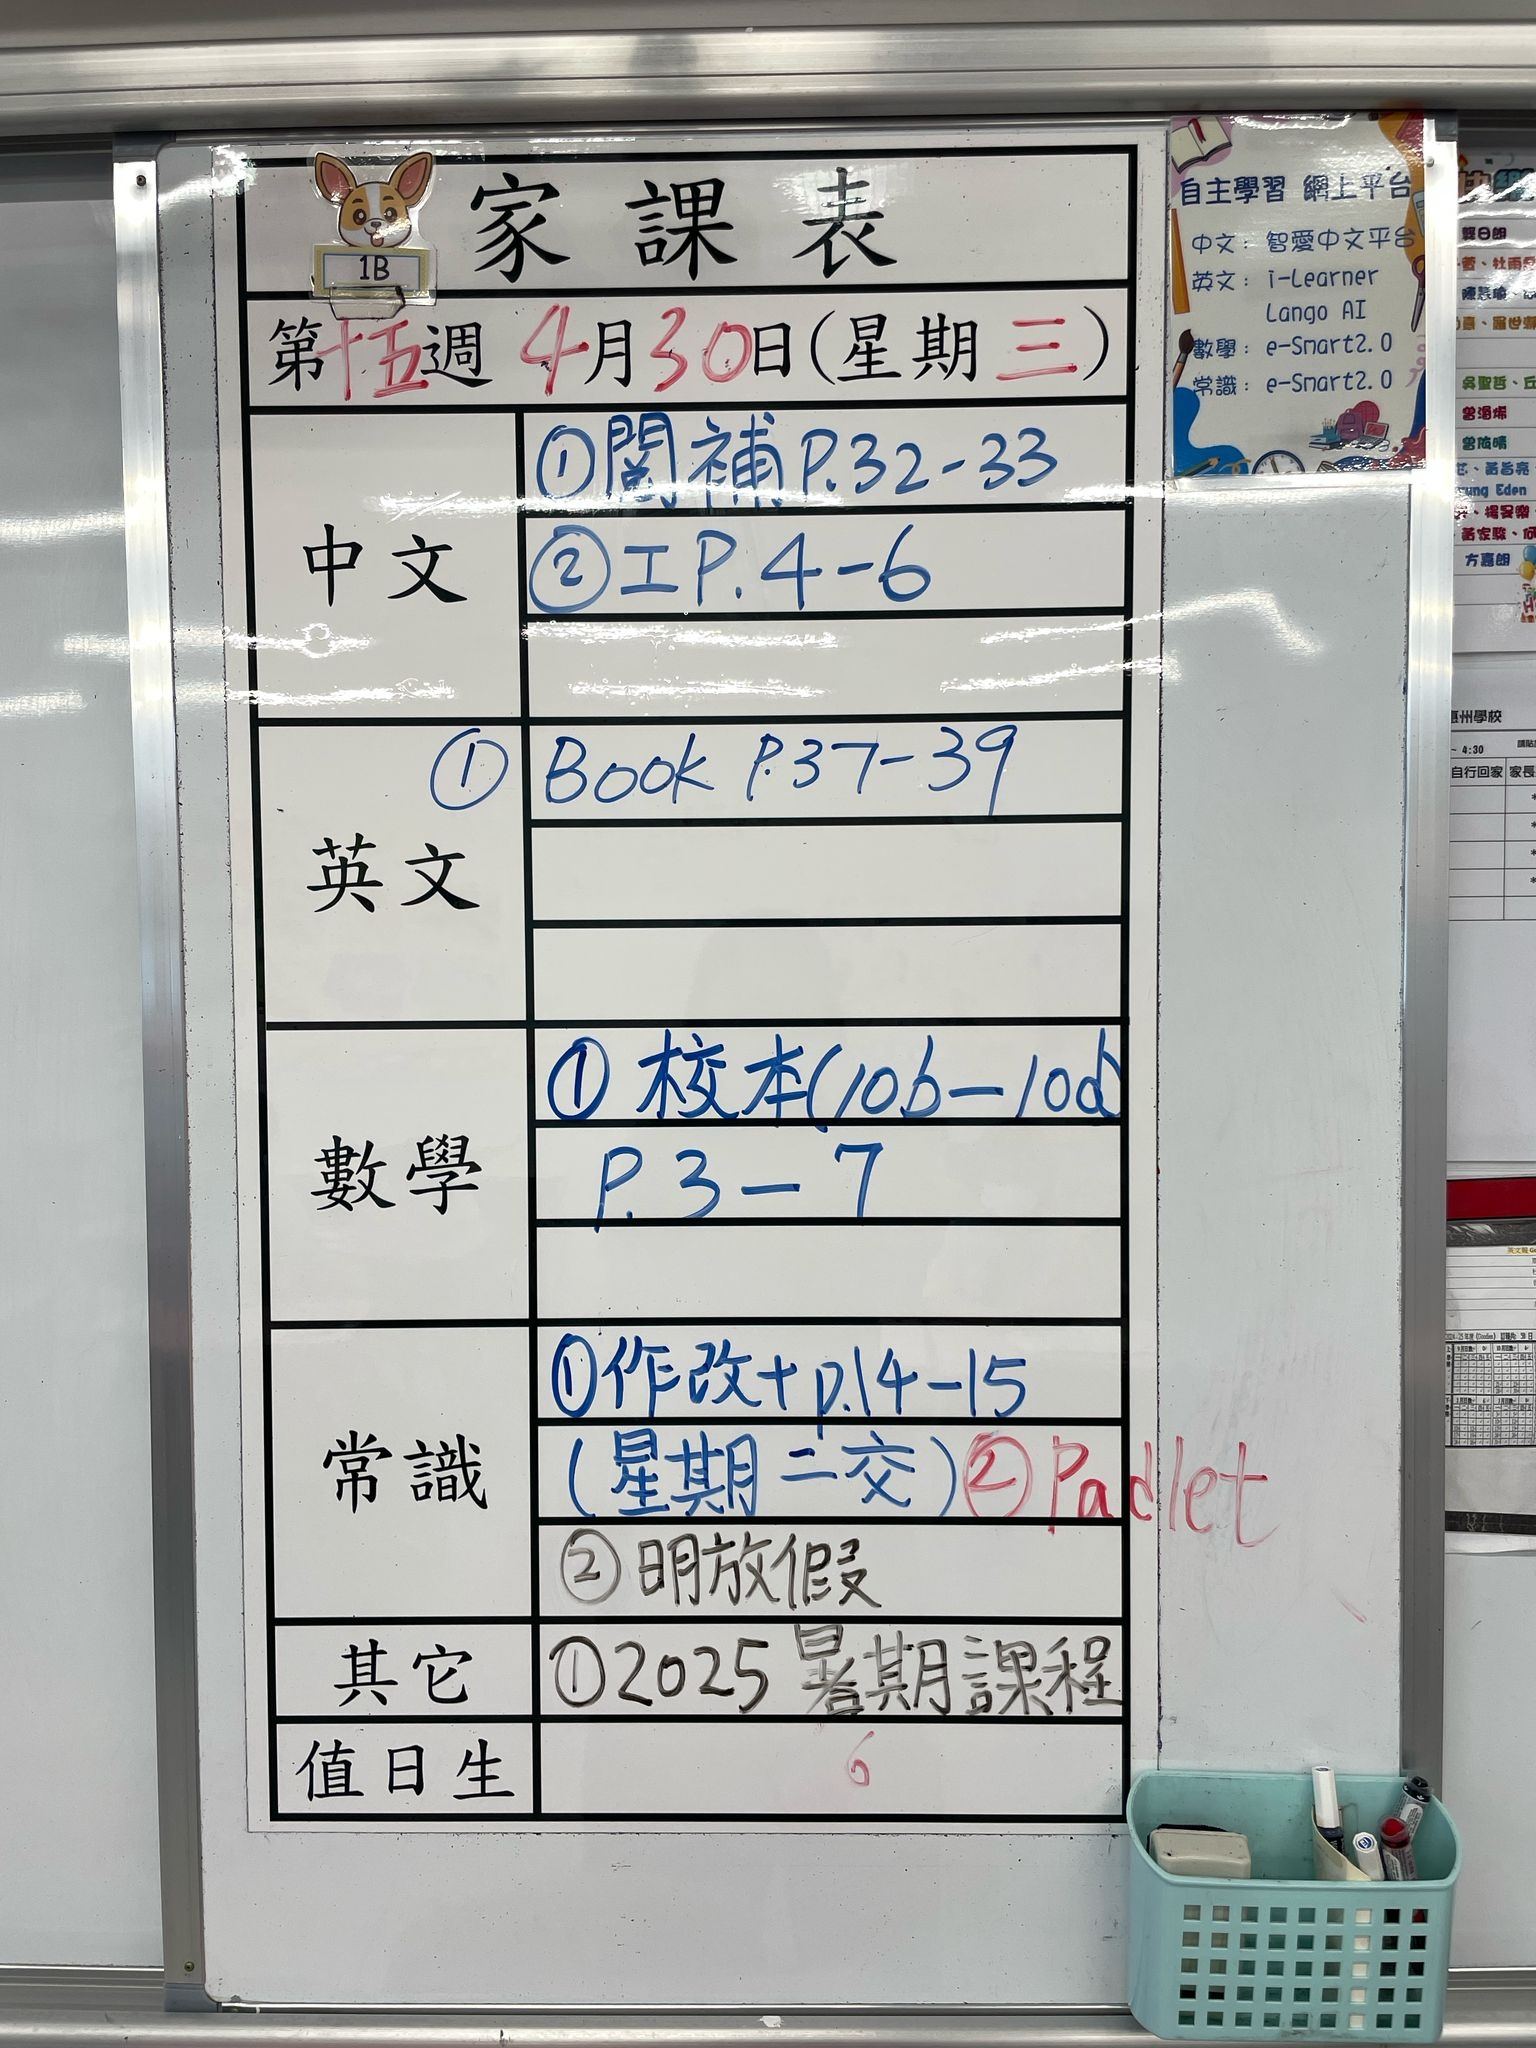 家課表
1B
第十五週 4月30日(星期三)
中文
①閱補 P.32-33
②工 P.4-6
英文
① Book P.37-39
數學
① 校本(10b-10d
P.3-7
常識
①作改+p.14-15
(星期二交) ②Padlet
②明放假
其它
①2025暑期課程
值日生
6
自主學習 網上平台
中文: 智愛中文平台
英文: i-Learner
Lango AI
數學: e-Smart2.0
常識: e-Smart2.0
吳聖哲、丘
Eden
黃家駿、何
方嘉朗
州學校
4:30
自行回家 家長